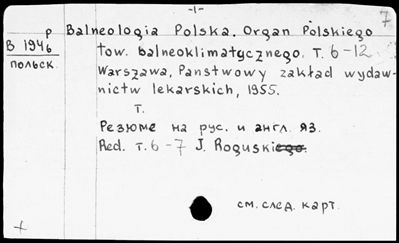 -1-
7
р Balneologia Polska. Organ Polskiego
В 1946 tow. balneoklimatycznego. T. 6-12.
польск. Warszawa, Państwowy zakład wydaw-
nictw lekarskich, 1955.
т.
Резюме на рус. и англ. яз.
Red. т. 6-7 J. Roguskiego.
см. след. карт.
+